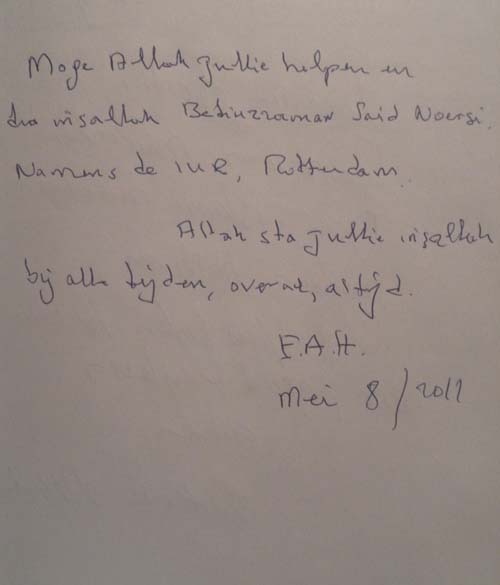 Moge Allah jullie helpen en
dra insallah Bediuzzaman Said Noersi.
Namens de IUR, Rotterdam.
Allah sta jullie insallah
bij alle tijden, overal, altijd.
F.A.H.
Mei 8/2011